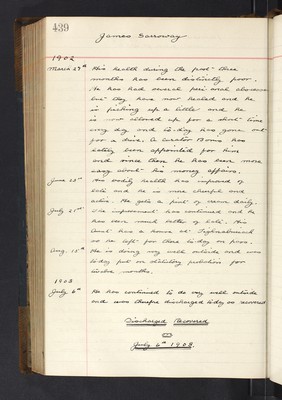 439
James Sarroway
1902
March 27th His health during the past three
months has been distinctly poor.
He has had several peri-anal abscesses
but they have now healed and he
is picking up a little and he
is now allowed up for a short time
every day and to-day has gone out
for a drive. A Curator Bonis has
lately been appointed for him
and since then he has been more
easy about his money affairs.
June 25th His bodily health has improved of
late and he is more cheerful and
active. He gets a pint of milk daily.
July 21st The improvement has continued and he
has been much better of late. His
Aunt has a house at
so he left for there to-day on pass.
Aug. 15th He is doing very well outside and was
to-day put on statutory probation for
twelve months.
1903
July 6th He has continued to do very well outside
and was therefore discharged to-day as recovered
Discharged Recovered
July 6th 1903.